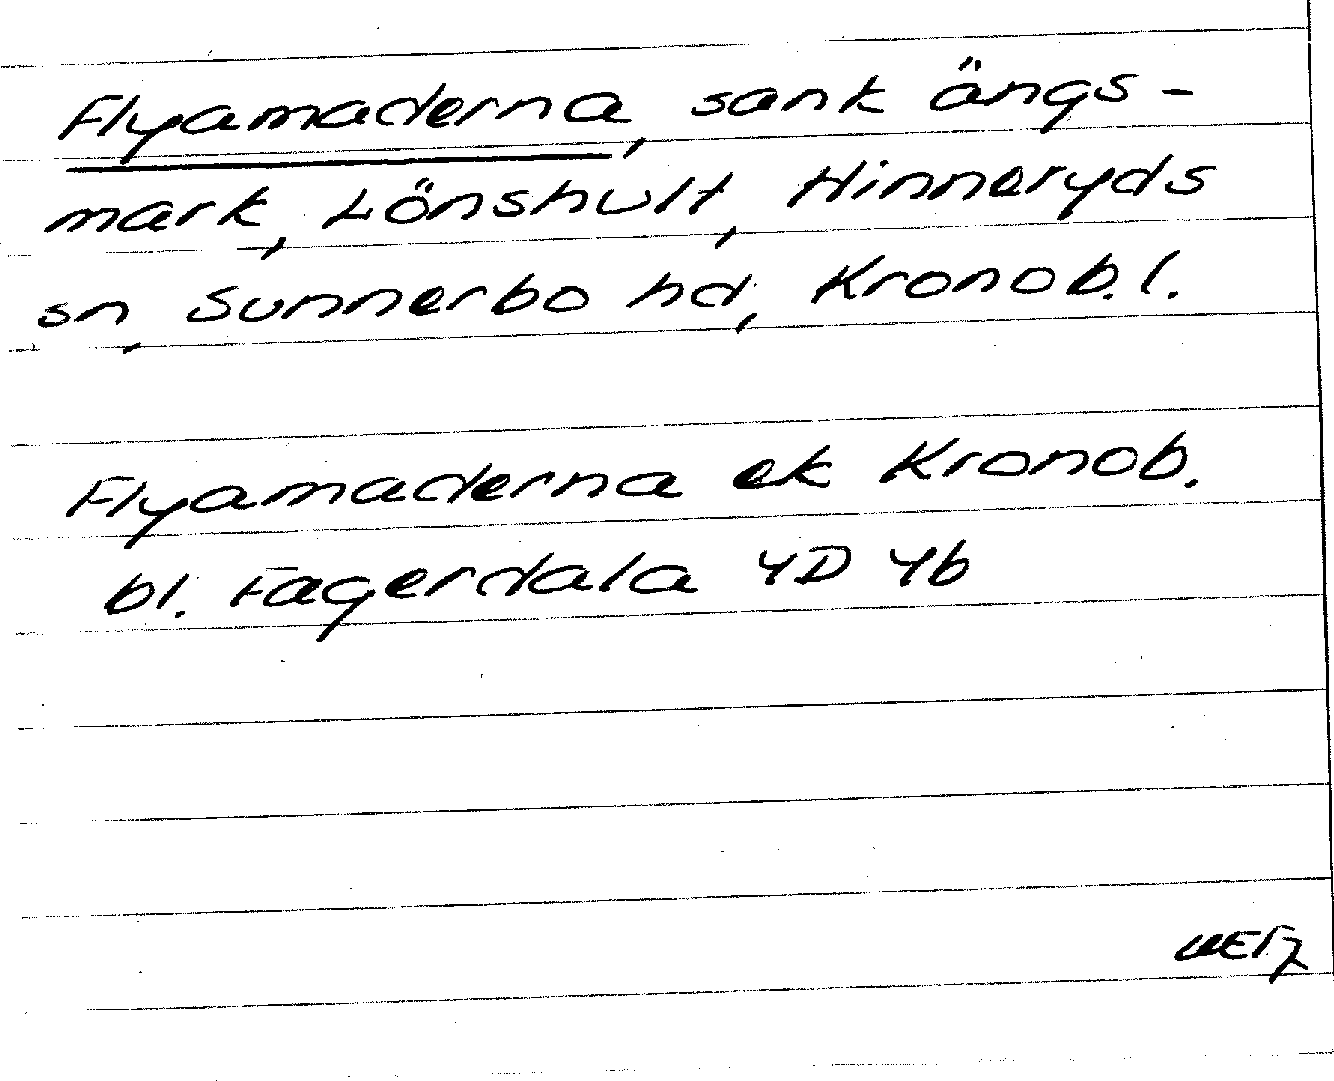 Flyamaderna, sank ängs-
mark, Lönshult, Hinneryds
sn, Sunnerbo hd, Kronob. l.
Flyamaderna ek Kronob.
bl. Fagerdala 4D 4b